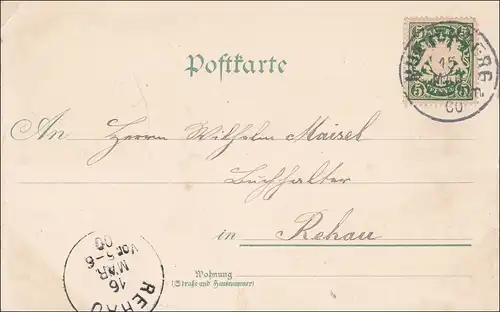 Postkarte
NÜRNBERG
15
MAR
00
5 5
An Herrn Wilhelm Maisel
Buchhalter
in Rehau
Wohnung
(Straße und Hausnummer)
REHAU
16
MÄR
Vor.5-6
00